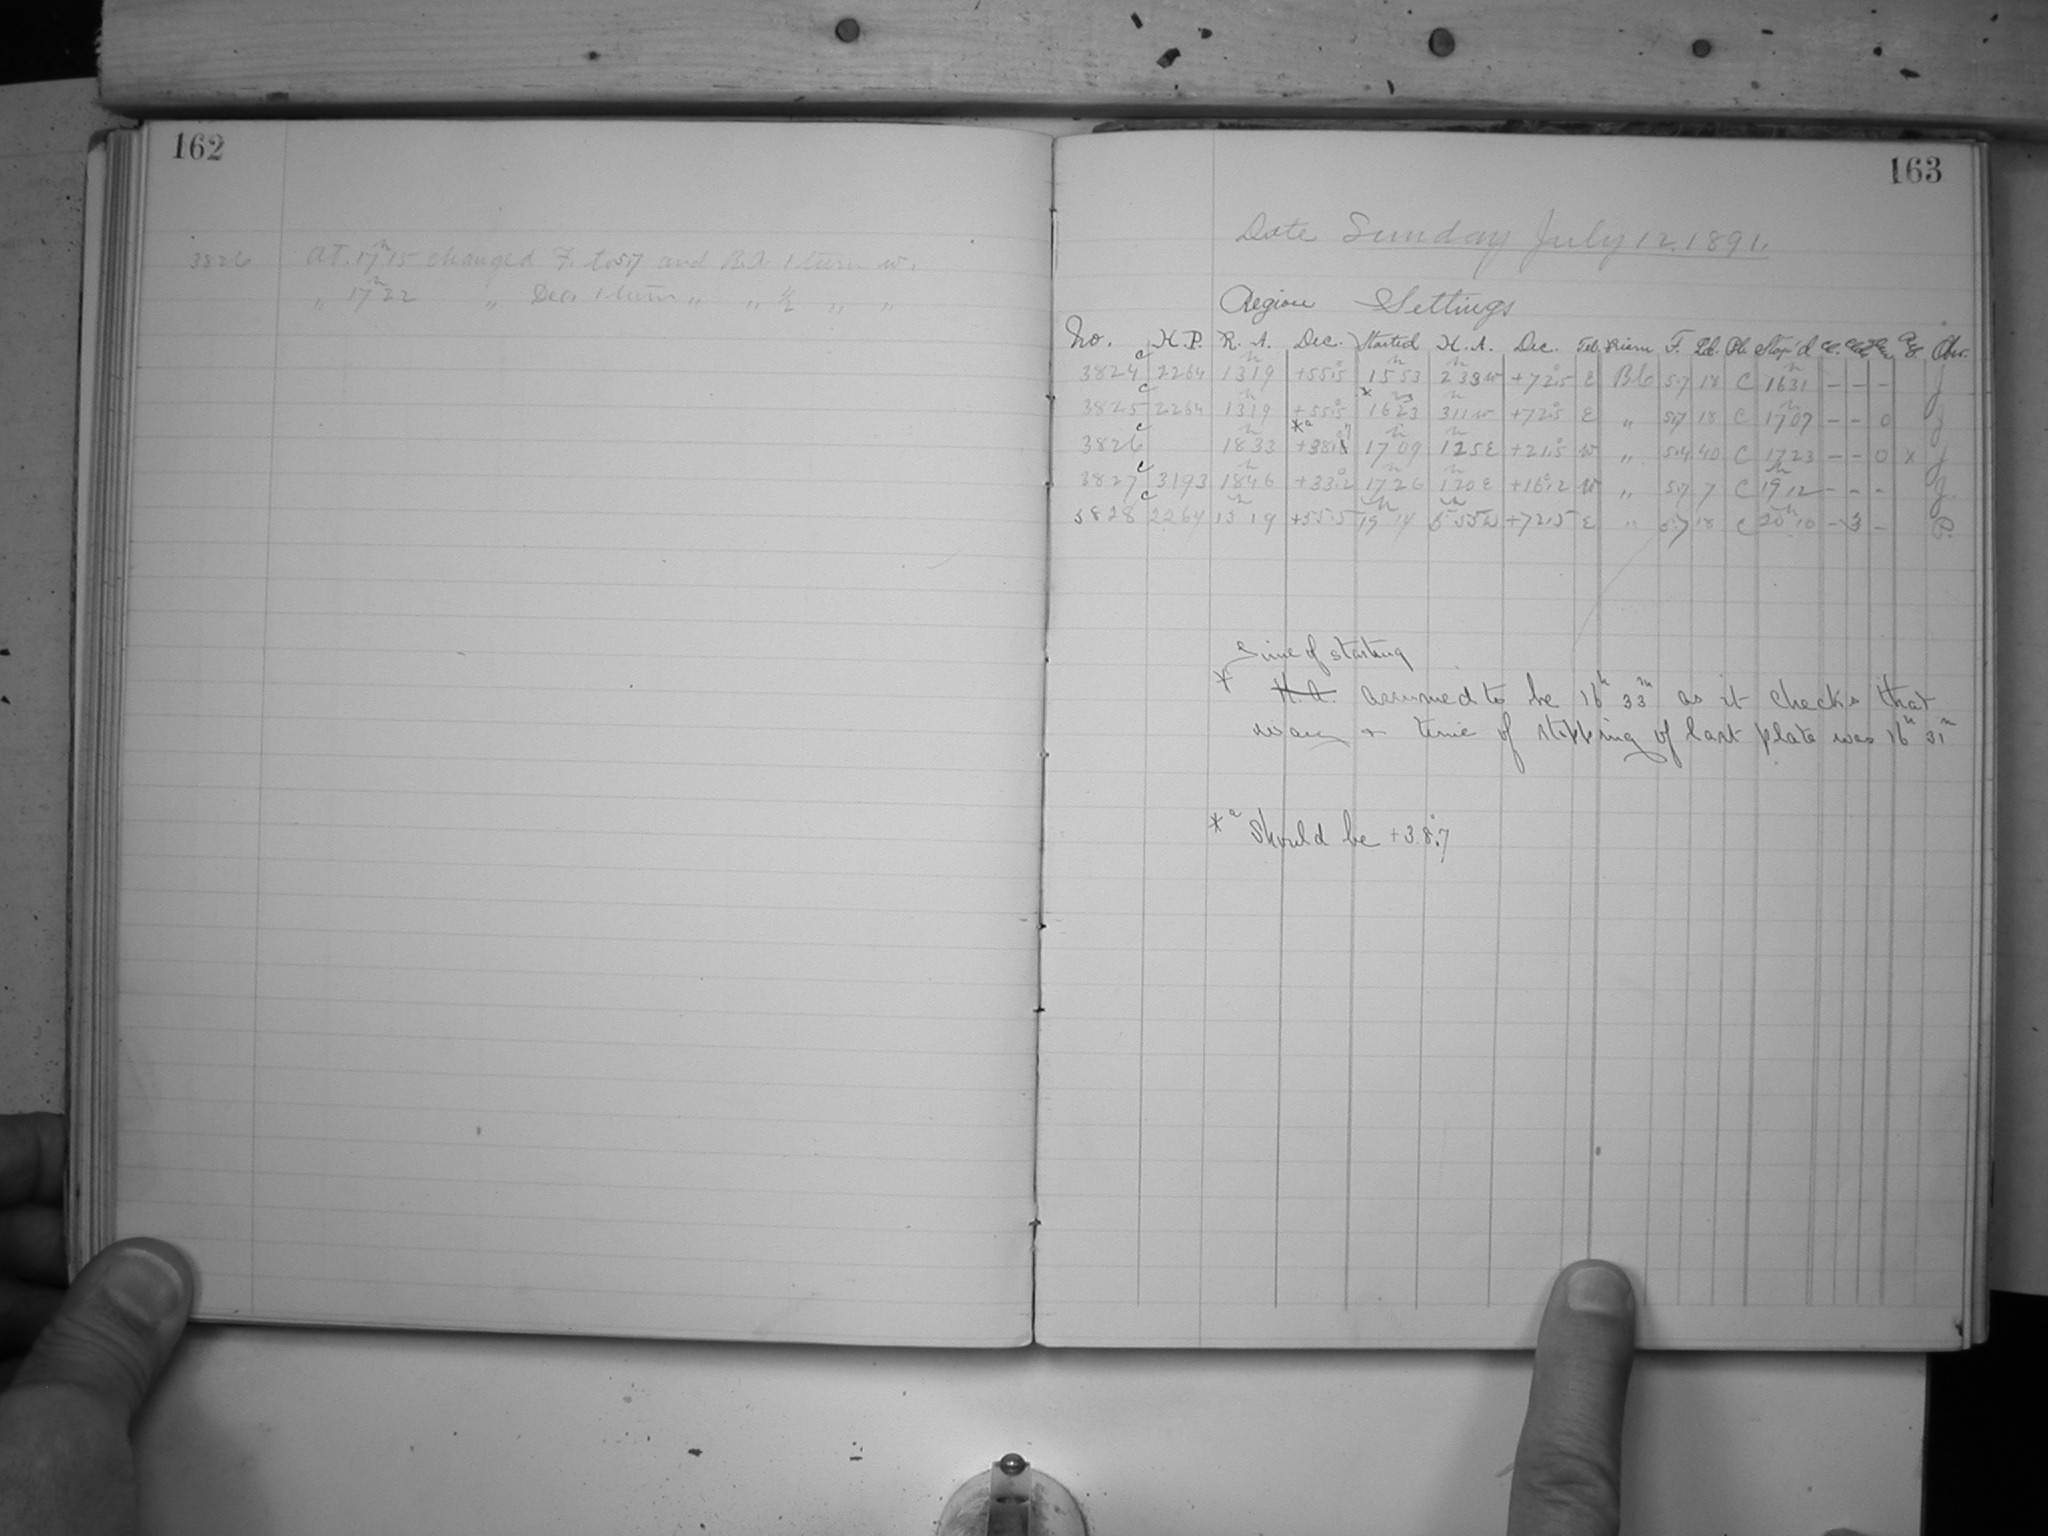 162
3826 At 17h15 changed F. to 5.7 and R.A. 1 turn w.
" 17h22 " Dec. 1 turn " " 1/2 " "
163
Date Sunday July 12. 1891.
Region Settings
No. H.P. R.A. Dec. Started H.A. Dec. Tel. F. Pl. Stop'd Obs.
3824 c 2264 13h19 +55°.5 15h53 2h33w +72°.5 E B6 5.7 18 C 16h31 - - - J
3825 c 2264 13h19 +55°.5 × 16h23 3h11w +72°.5 E " 5.7 18 C 17h07 - - 0 J
3826 c 18h33 *a 17h09 1h25E +21°.5 w " 5.4 40 C 17h23 - - 0 x J
3827 c 3193 18h46 +33°.2 17h26 1h20E +16°.2 w " 5.7 7 C 19h12 - - - J.
3828 c 2264 13h19 +55.5 19h14 5h55w +72.5 E " 5.7 18 C 20h10 - 3 - P.
Time of starting
* H.A. assumed to be 16h 33m as it checks that
way + time of stopping of last plate was 16h 31m
*a Should be +3°.8.7